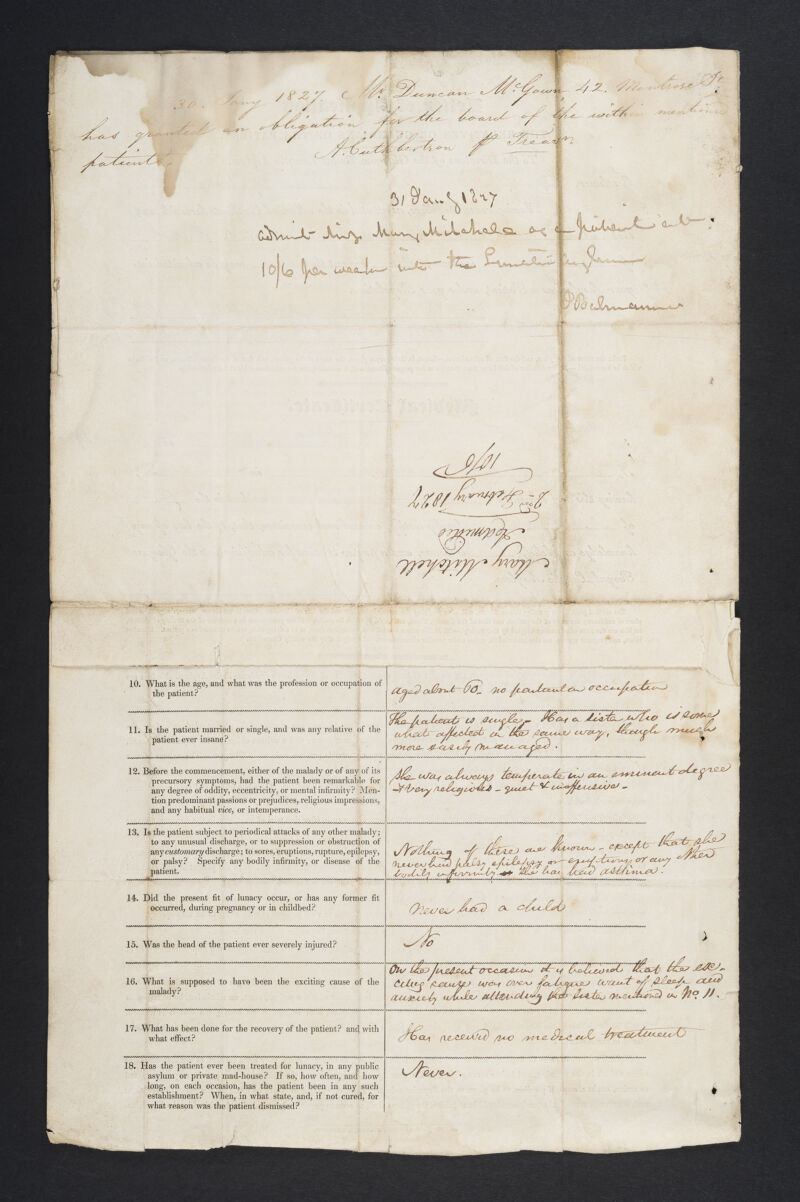 30 Jany 1827. Mr. Duncan McGown 42. Montrose St.
has granted an obligation for the board of the within mentiond
patient.
A. Cuthbertson Treasr
31 Jany 1827
admit Mary Mitchell as a patient at
10/6 per week into the Lunatic Asylum
Mary Mitchell
Admitted
2nd February 1827
10/6
10. What is the age, and what was the profession or occupation of
the patient?
aged about 60 no particular occupation
11. Is the patient married or single, and was any relative of the
patient ever insane?
The patient is single. Has a sister who is some
what affected in the same way, though much
more easily managed.
12. Before the commencement, either of the malady or of any of its
precursory symptoms, had the patient been remarkable for
any degree of oddity, eccentricity, or mental infirmity? Men-
tion predominant passions or prejudices, religious impressions,
and any habitual vice, or intemperance.
She was always temperate in an eminent degree
& very religious - quiet & inoffensive -
13. Is the patient subject to periodical attacks of any other malady;
to any unusual discharge, or to suppression or obstruction of
any customary discharge; to sores, eruptions, rupture, epilepsy,
or palsy? Specify any bodily infirmity, or disease of the
patient.
Nothing of these are known - except that she
never had palsy epilepsy or eruptions or any other
bodily infirmity she has had asthma.
14. Did the present fit of lunacy occur, or has any former fit
occurred, during pregnancy or in childbed?
never had a child
15. Was the head of the patient ever severely injured?
No
16. What is supposed to have been the exciting cause of the
malady?
On the present occasion it is believed that the ex-
citing cause was over fatigue want of sleep and
anxiety while attending the sister mentioned in No. 11.
17. What has been done for the recovery of the patient? and with
what effect?
Has received no medical treatment
18. Has the patient ever been treated for lunacy, in any public
asylum or private mad-house? If so, how often, and how
long, on each occasion, has the patient been in any such
establishment? When, in what state, and, if not cured, for
what reason was the patient dismissed?
Never.